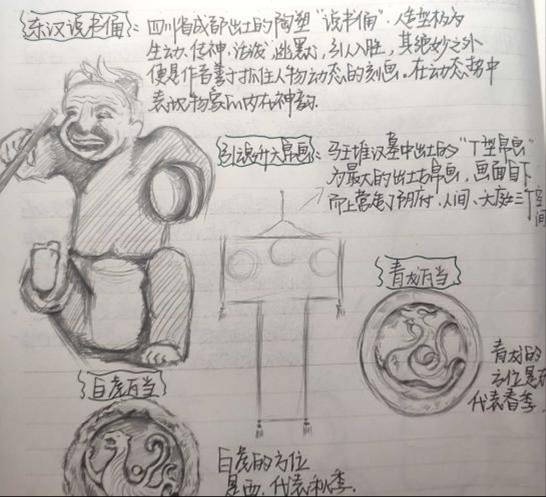 东汉说书俑：四川省成都出土的陶塑“说书俑”，人造型极为
生动、传神、活泼、逃黑灯，引人入胜，其绝妙之处
便是作者善于抓住人物动态的刻画。在动态势中
表现物象的内在神韵.
引魂升天帛画：马王堆汉墓中出土的“T型帛画”
为最大的出土古帛画，画面自下
而上营造了阴府、人间、天庭三个空间
青龙瓦当
青龙的
方位是东
代表春季.
白虎瓦当
白虎的方位
是西，代表秋季.